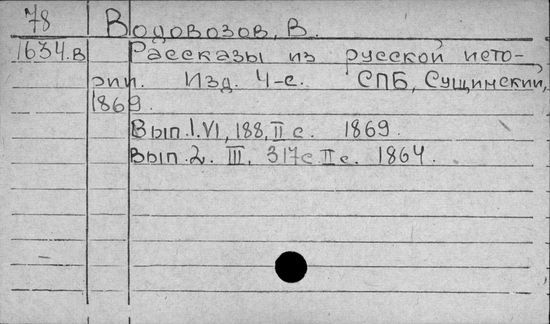 78 Водовозов, В.
1634.в Рассказы из русской исто-
рии. Изд. 4-е. СПБ, Сущинский,
1869.
Вып.1. VI, 188, II с. 1869.
Вып.2. III, 317с II с. 1864.